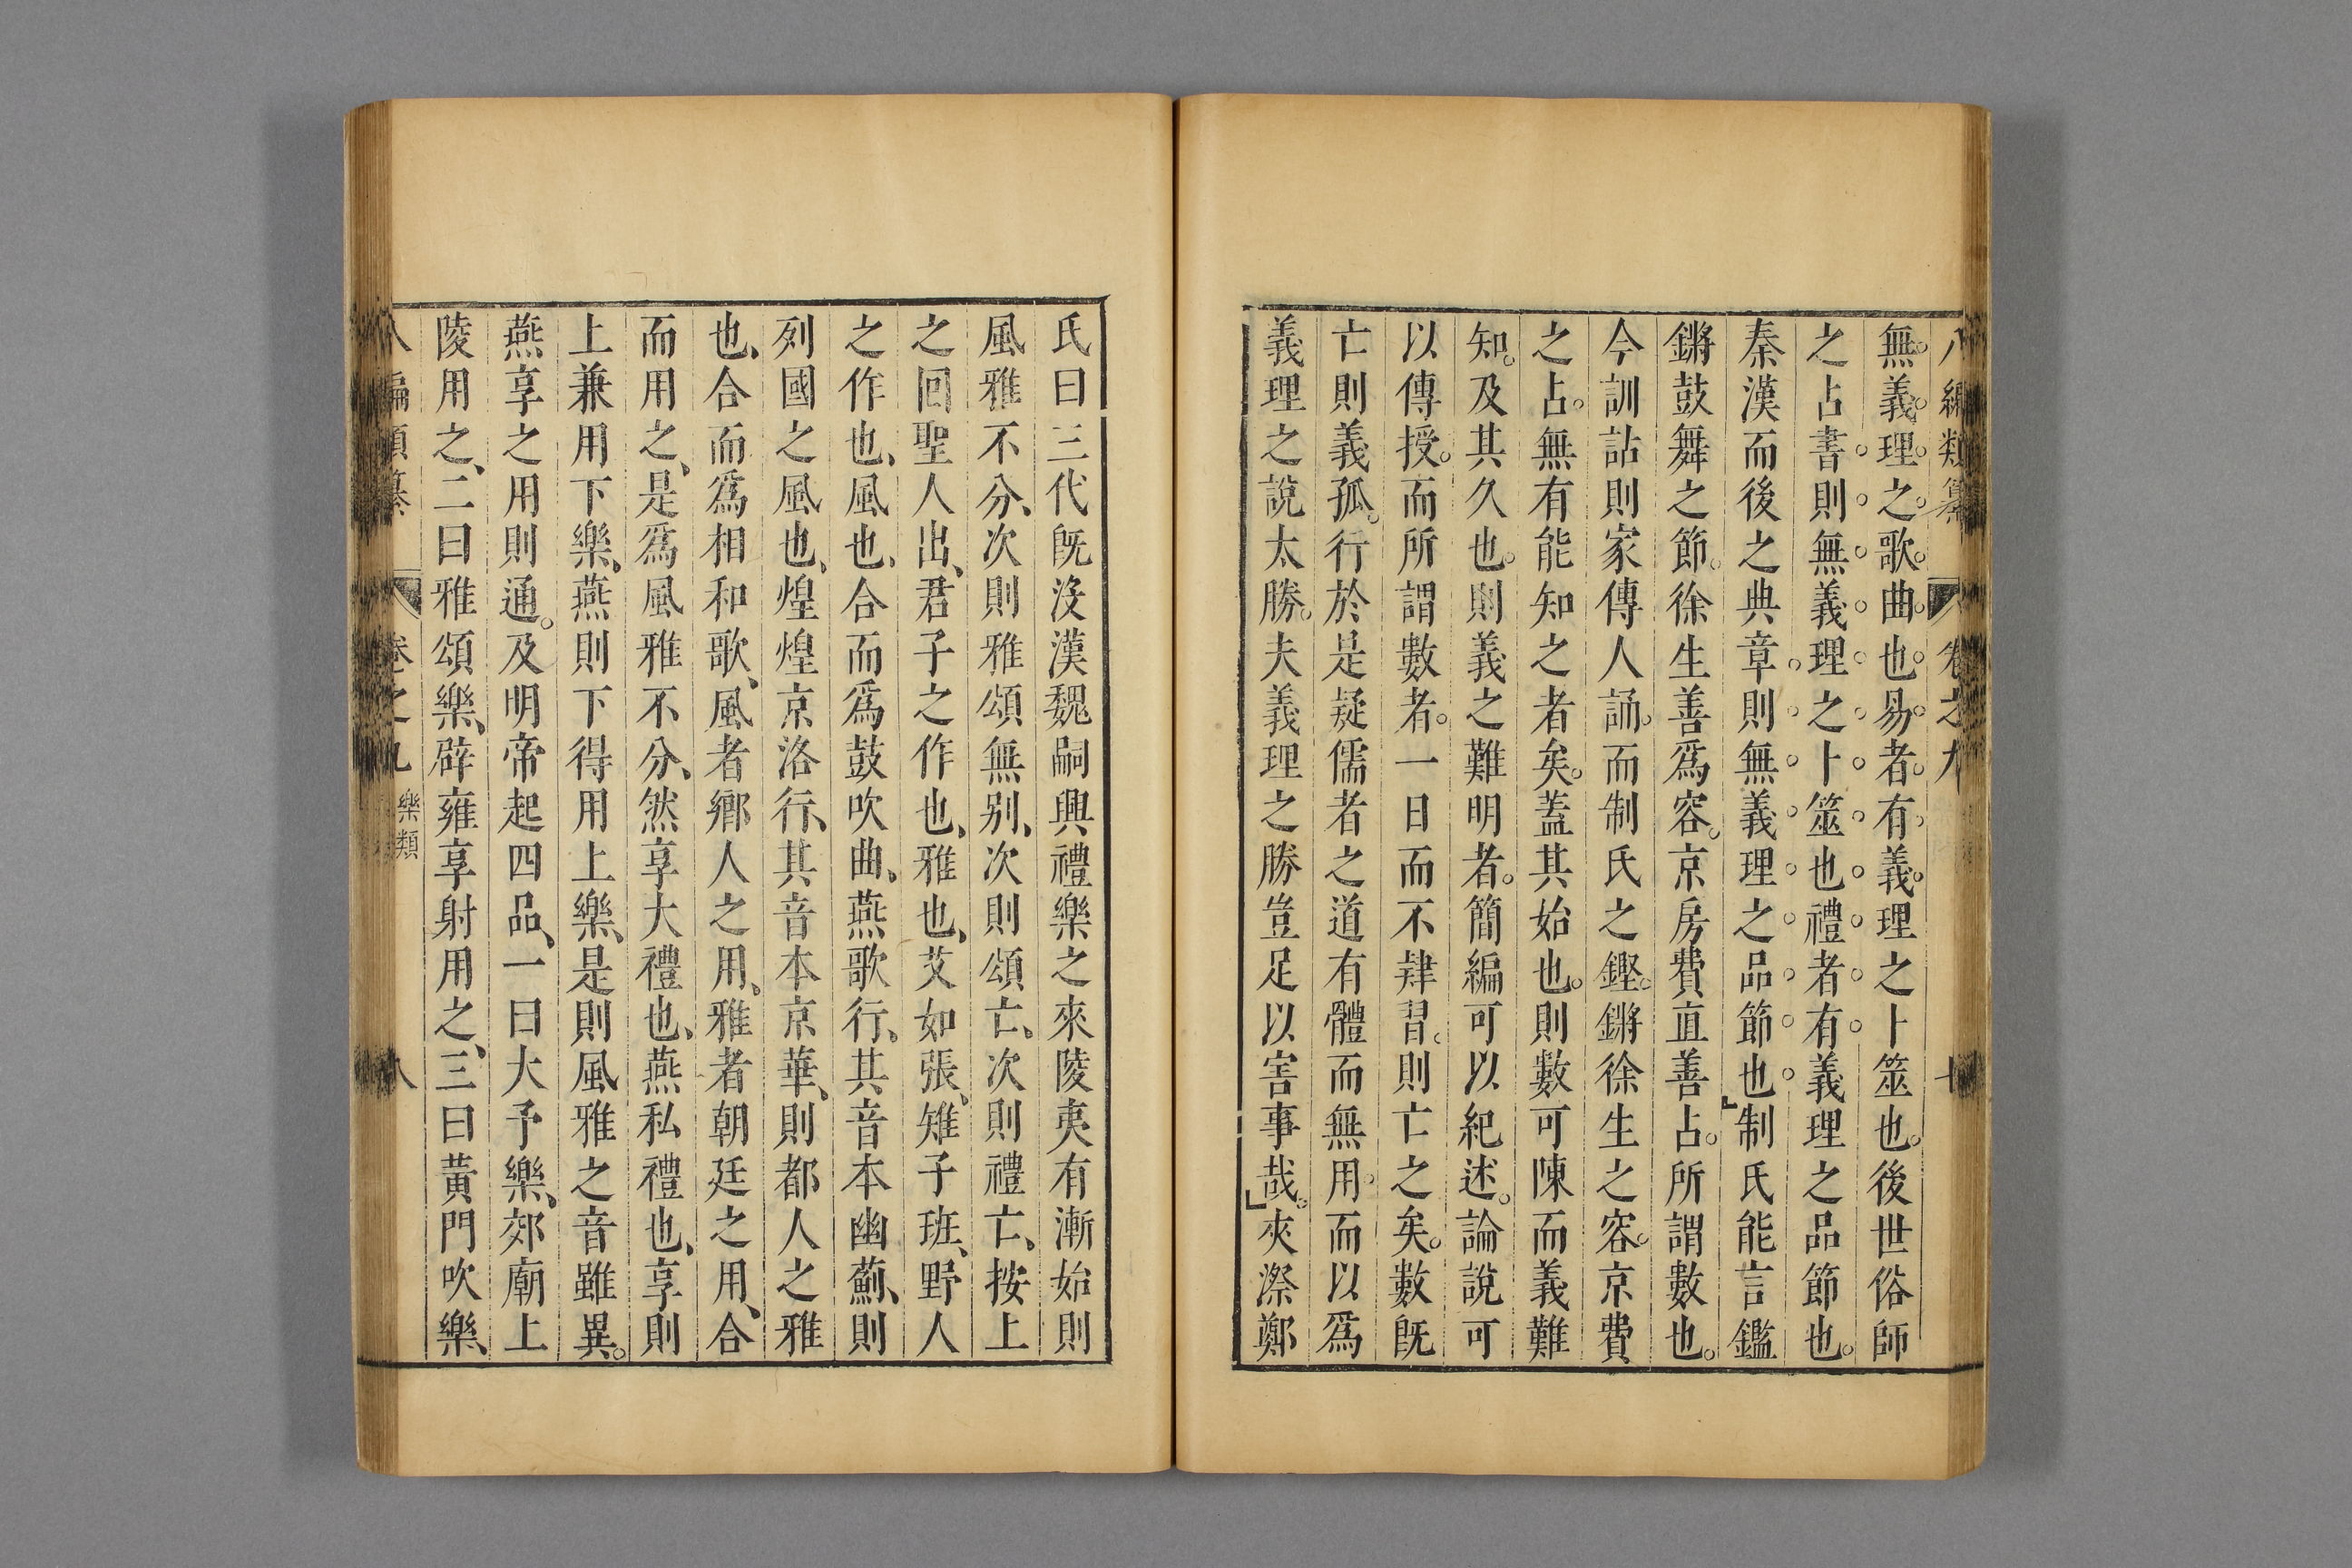 八編類纂 卷之九
無義理之歌曲也易者有義理之卜筮也後世俗師
之占書則無義理之卜筮也禮者有義理之品節也
秦漢而後之典章則無義理之品節也制氏能言鑑
鏘鼓舞之節徐生善爲容京房費直善占所謂數也
今訓詁則家傳人誦而制氏之鏗鏘徐生之容京費
之占無有能知之者矣蓋其始也則數可陳而義難
知及其久也則義之難明者簡編可以紀述論說可
以傳授而所謂數者一日而不肄習則亡之矣數旣
亡則義孤行於是疑儒者之道有體而無用而以爲
義理之說太勝夫義理之勝豈足以害事哉夾漈鄭
氏曰三代旣沒漢魏嗣興禮樂之來陵夷有漸始則
風雅不分次則雅頌無别次則頌亡次則禮亡按上
之回聖人出君子之作也雅也艾如張雉子班野人
之作也風也合而爲鼓吹曲燕歌行其音本幽薊則
列國之風也煌煌京洛行其音本京華則都人之雅
也合而爲相和歌風者鄉人之用雅者朝廷之用合
而用之是爲風雅不分然享大禮也燕私禮也享則
上兼用下樂燕則下得用上樂是則風雅之音雖異
燕享之用則通及明帝起四品一曰大予樂郊廟上
陵用之二曰雅頌樂辟雍享射用之三曰黃門吹樂
八編類纂 卷之九 樂類 八